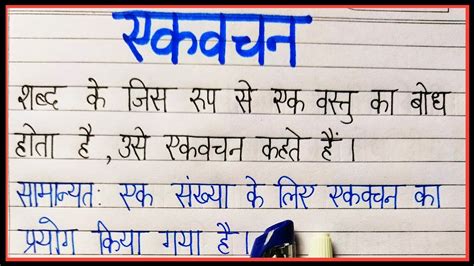 एकवचन
शब्द के जिस रुप से एक वस्तु का बोध
होता है , उसे एकवचन कहते हैं ।
सामान्यत: एक संख्या के लिए एकवचन का
प्रयोग किया गया है ।